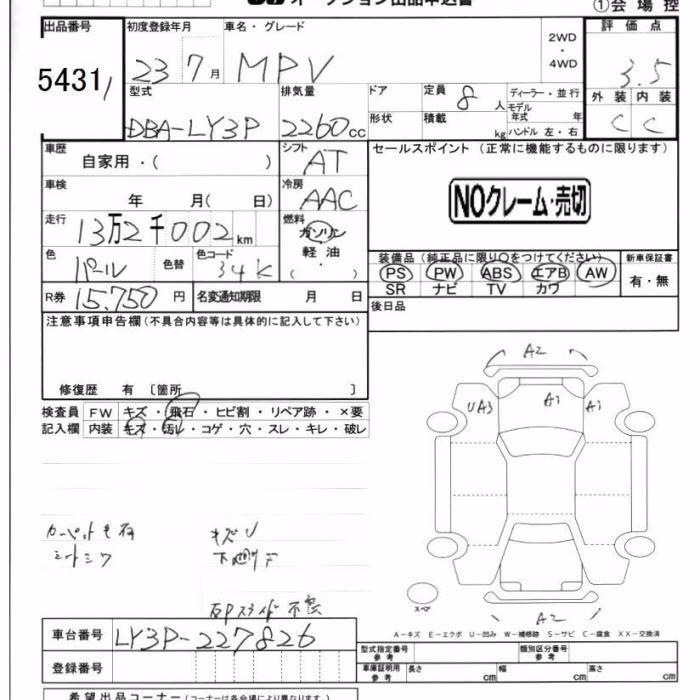 オークション出品申込書
①会場控
出品番号 初度登録年月 車名・グレード 2WD・4WD 評価点
5431 23 7月 MPV 3.5
型式 排気量 ドア 定員 8人 ディーラー・並行 外装 内装
DBA-LY3P 2260cc 形状 積載 kg モデル年式 年 C C
ハンドル 左・右
車歴 自家用・( ) シフト AT セールスポイント (正常に機能するものに限ります)
車検 年 月( 日) 冷房 AAC NOクレーム・売切
走行 13万2千002km 燃料 ガソリン・軽油・( )
色 パール 色替 色コード 34K 装備品 (純正品に限り○をつけてください) 新車保証書
PS PW ABS エアB AW 有・無
SR ナビ TV カワ
R券 15,750円 名変通知期限 月 日 後日品
注意事項申告欄 (不具合内容等は具体的に記入して下さい)
修復歴 有 〔箇所 〕
検査員 FW キズ・飛石・ヒビ割・リペア跡・×要
記入欄 内装 キズ・汚レ・コゲ・穴・スレ・キレ・破レ
A2
UA3 A1 A1
シートシワ キズU
スペア
A2
A-キズ E-エクボ U-凹み W-補修跡 S-サビ C-腐食 XX-交換済
車台番号 LY3P-227826 型式指定番号 参考 類別区分番号 参考
登録番号 車庫証明用 参考 長さ cm 幅 cm 高さ cm
希望出品コーナー (コーナーは各会場により異なります。)